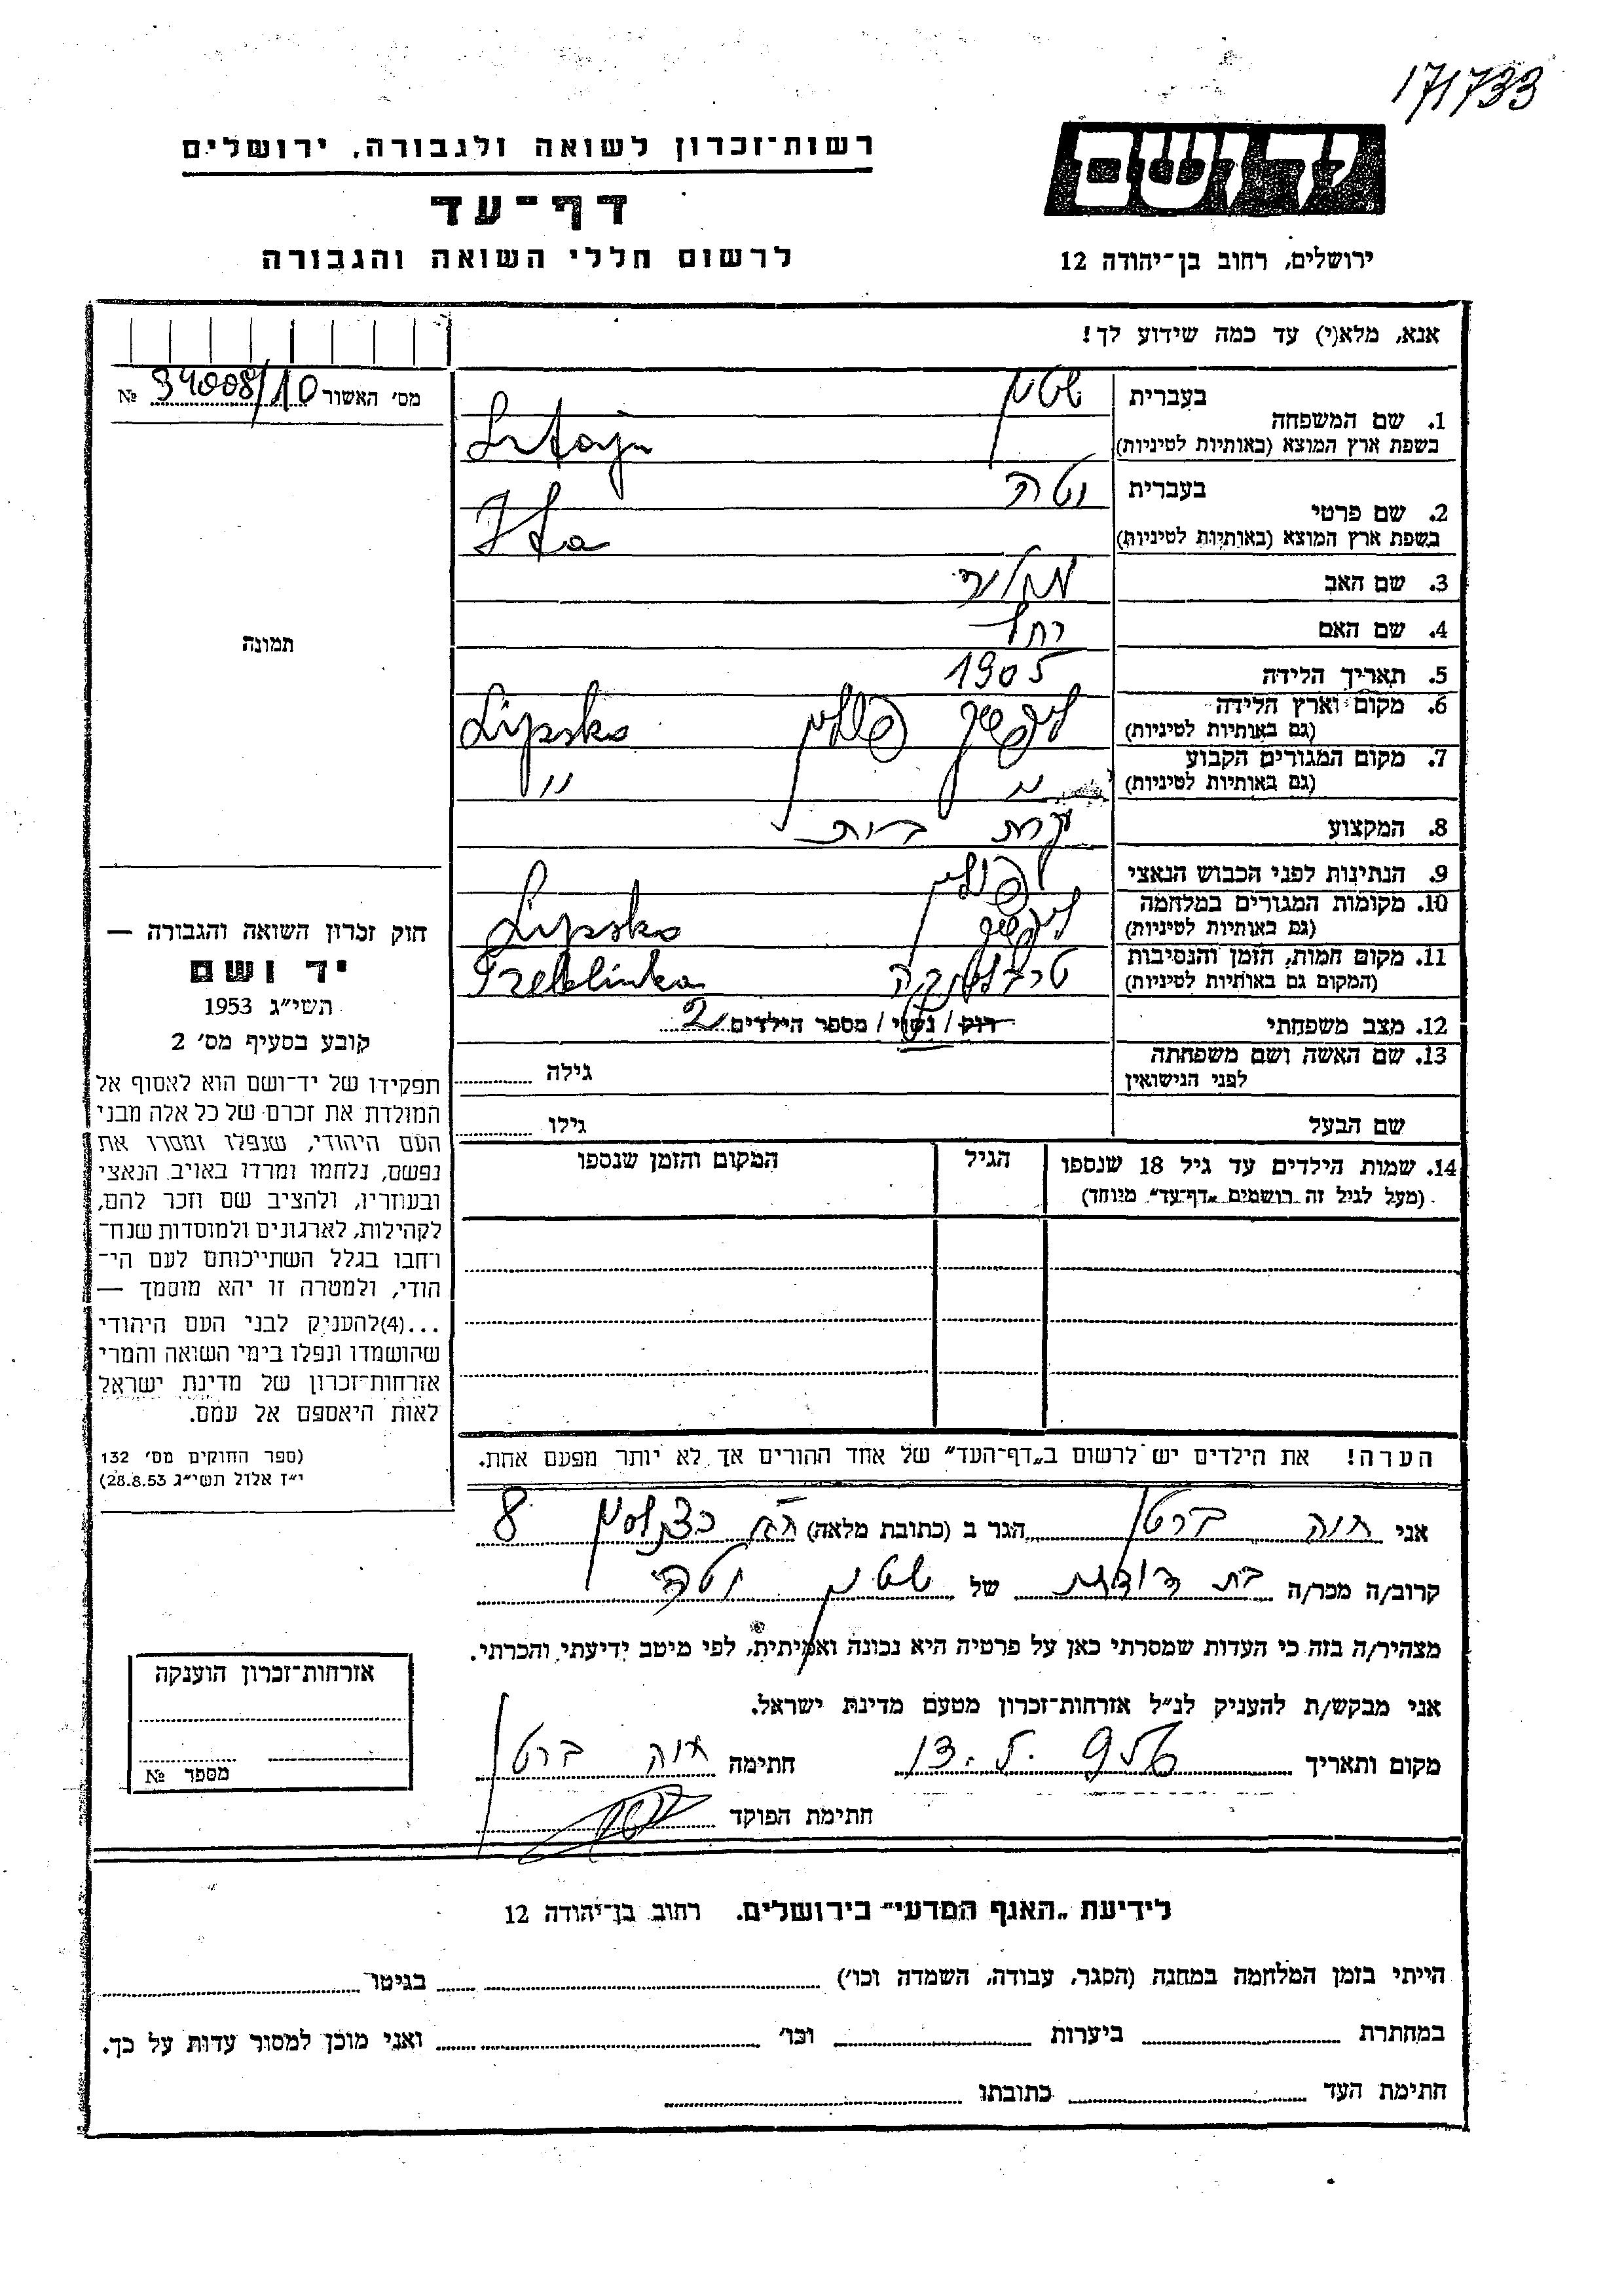 171733
יד ושם
רשות־זכרון לשואה ולגבורה, ירושלים
דף־עד
לרשום חללי השואה והגבורה
ירושלים, רחוב בן־יהודה 12
אנא, מלא(י) עד כמה שידוע לך!
מס׳ האשור 34008/10 №
1. שם המשפחה
בעברית שטין
בשפת ארץ המוצא (באותיות לטיניות) Sztajn
2. שם פרטי
בעברית יטה
בשפת ארץ המוצא (באותיות לטיניות) Ita
3. שם האב
4. שם האם רחל
5. תאריך הלידה 1905
6. מקום וארץ הלידה
(גם באותיות לטיניות) ליפסק פולין Lipsko
7. מקום המגורים הקבוע
(גם באותיות לטיניות) " "
8. המקצוע עקרת בית
9. הנתינות לפני הכבוש הנאצי פולין
10. מקומות המגורים במלחמה
(גם באותיות לטיניות) ליפסק Lipsko
11. מקום המות, הזמן והנסיבות
(המקום גם באותיות לטיניות) טרבלינקה Treblinka
12. מצב משפחתי רוק / נשוי / מספר הילדים 2
13. שם האשה ושם משפחתה
לפני הנישואין
גילה
שם הבעל גילו
14. שמות הילדים עד גיל 18 שנספו
(מעל לגיל זה רושמים „דף־עד״ מיוחד)
הגיל
המקום והזמן שנספו
הערה! את הילדים יש לרשום ב„דף־העד״ של אחד ההורים אך לא יותר מפעם אחת.
תמונה
חוק זכרון השואה והגבורה —
יד ושם
תשי״ג 1953
קובע בסעיף מס׳ 2
תפקידו של יד־ושם הוא לאסוף אל
המולדת את זכרם של כל אלה מבני
העם היהודי, שנפלו ומסרו את
נפשם, נלחמו ומרדו באויב הנאצי
ובעוזריו, ולהציב שם וזכר להם,
לקהילות, לארגונים ולמוסדות שנח־
רבו בגלל השתייכותם לעם הי־
הודי, ולמטרה זו יהא מוסמך —
...(4)להעניק לבני העם היהודי
שהושמדו ונפלו בימי השואה והמרי
אזרחות־זכרון של מדינת ישראל
לאות היאספם אל עמם.
(ספר החוקים מס׳ 132
י״ז אלול תשי״ג 28.8.53)
אני חוה ברטן הגר ב (כתובת מלאה) כצנלסון 8
קרוב/ה מכר/ה בת דודה של שטין יטה
מצהיר/ה בזה כי העדות שמסרתי כאן על פרטיה היא נכונה ואמיתית, לפי מיטב ידיעתי והכרתי.
אני מבקש/ת להעניק לנ״ל אזרחות־זכרון מטעם מדינת ישראל.
מקום ותאריך 13.5.956 חתימה חוה ברטן
חתימת הפוקד
אזרחות־זכרון הוענקה
מספר №
לידיעת „האגף המדעי״ בירושלים. רחוב בן־יהודה 12
הייתי בזמן המלחמה במחנה (הסגר, עבודה, השמדה וכו׳) בגיטו
במחתרת ביערות וכו׳ ואני מוכן למסור עדות על כך.
חתימת העד כתובתו